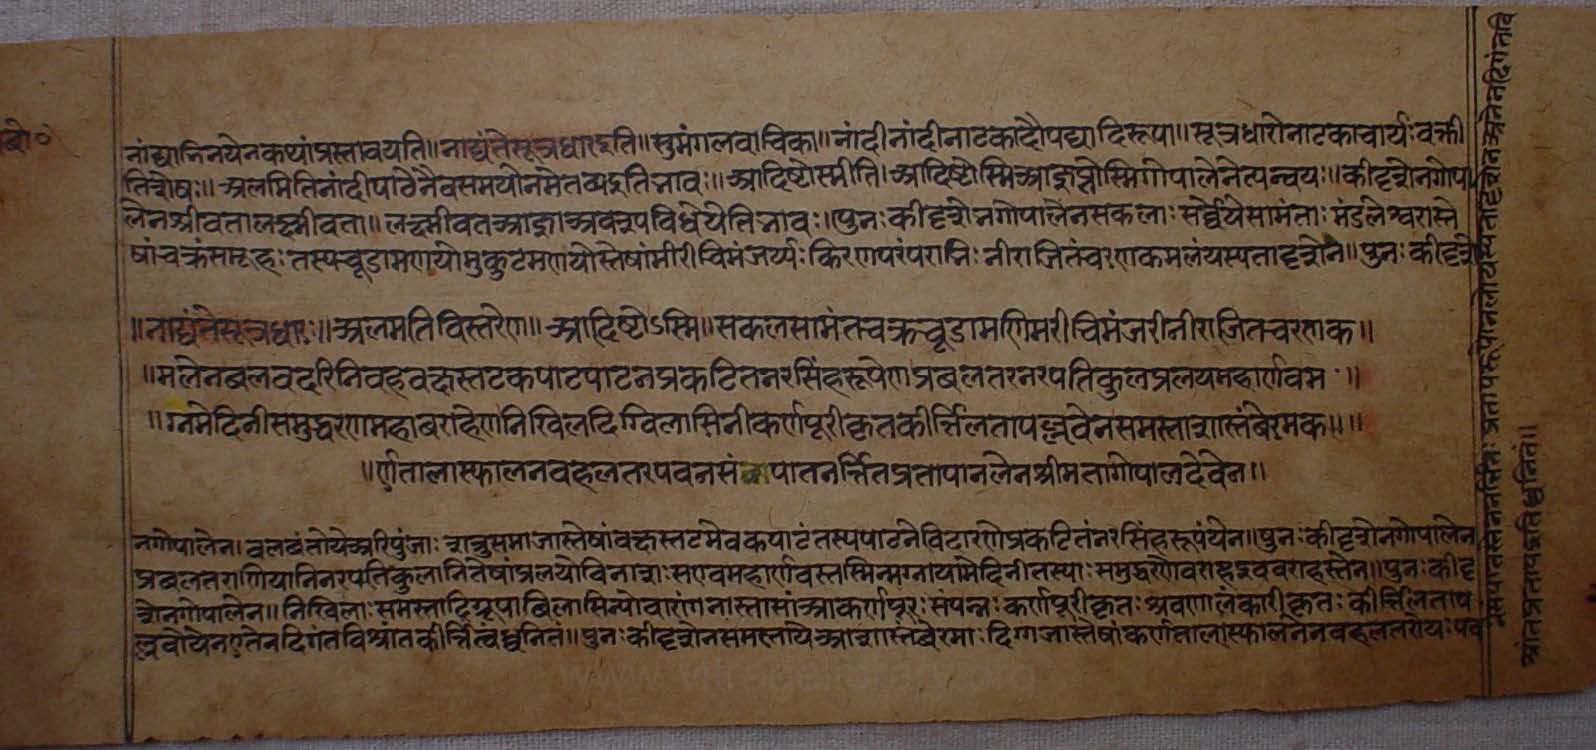 बो०
नांद्याभिनयेनकथांप्रस्तावयति॥नाद्यंतेसूत्रधारइति॥सुमंगलवाचिका॥नांदीनांदीनाटकादौपद्यादिरूपा॥सूत्रधारोनाटकाचार्यःवक्ती
तिशेषः॥अलमितिनांदीपाठेनैवसमयोनमेतव्यइतिभावः॥आदिष्टोस्मीति।आदिष्टोस्मिआज्ञप्तोस्मिगोपालेनेत्यन्वयः॥कीदृशेनगोपा
लेनश्रीवतालक्ष्मीवता॥लक्ष्मीवतआज्ञाअवश्यविधेयेतिभावः।पुनःकीदृशेनसकलाःसर्व्वेयेसामंताःमंडलेश्वरास्ते
षांचक्रंसमूहःतस्यचूडामणयोमुकुटमणयोस्तेषांमरीचिमंजर्य्यःकिरणपरंपराभिःनीराजितंचरणकमलंयस्यतादृशेन॥पुनःकीदृशे
॥नाद्यंतेसूत्रधारः॥अलमतिविस्तरेण॥आदिष्टोऽस्मि॥सकलसामंतचक्रचूडामणिमरीचिमंजरीनीराजितचरणक॥
॥मलेनबलवदरिनिवहवक्षस्तटकपाटपाटनप्रकटितनरसिंहरूपेणप्रबलतरनरपतिकुलप्रलयमहार्णवम॥
॥ग्नमेदिनीसमुद्धरणमहाबराहेणनिखिलदिग्विलासिनीकर्णपूरीकृतकीर्त्तिलतापल्लवेनसमस्ताशास्तंबेरमक॥॥
॥र्णतालास्फालनवहलतरपवनसंपातनर्त्तितप्रतापानलेनश्रीमतागोपालदेवेन॥
नगोपालेन।बलवंतोयेअरिपुंजाःशत्रुसमाजास्तेषांवक्षस्तटमेवकपाटंतस्यपाटनेविदारणेप्रकटितंनरसिंहरूपंयेन॥पुनःकीदृशेनगोपालेन
प्रबलतराणियानिनरपतिकुलानितेषांप्रलयोविनाशःसएवमहार्णवस्तस्मिन्मग्नायामेदिनीतस्याःसमुद्धरणेवराहइववराहस्तेन॥पुनःकीदृ
शेनगोपालेन॥निखिलाःसमस्तादिग्रूपाबिलासिन्योवारांगनास्तासांआकर्णपूरःसंपन्नःकर्णपूरीकृतःश्रवणालंकारीकृतःकीर्त्तिलताप
ल्लवोयेनएतेनदिगंतविश्रांतकीर्त्तित्वंध्वनितं॥पुनःकीदृशेनसमस्तायेआशास्तंबेरमाःदिग्गजास्तेषांकर्णतालास्फालनेनवहलतरोयःपव
नसंपातस्तेननर्त्तितःप्रतापरूपोनलोयस्यतादृशेनअनेनदिगंतवि
श्रांतप्रतापइतिध्वनितं॥